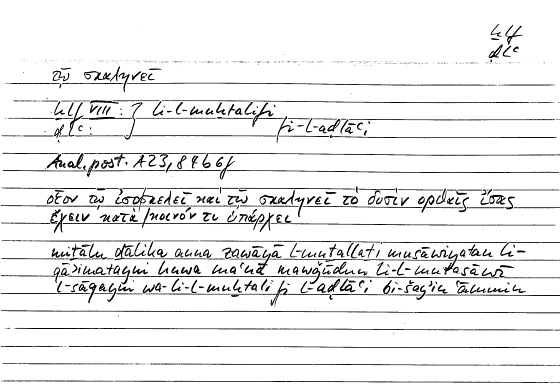 ḫlf
ḍlʿ
τῷ σκαληνεῖ
ḫlf VIII : } li-l-muḫtalifi
ḍlʿ : fī l-aḍlāʿi
Anal. post. A 23, 84b6f
οἷον τῷ ἰσοσκελεῖ καὶ τῷ σκαληνεῖ τὸ δυσὶν ὀρθαῖς ἴσας
ἔχειν κατὰ κοινόν τι ὑπάρχει
miṯālu ḏālika anna zawāyā l-muṯallaṯi musāwiyatun li-
qāʾimatayni huwa maʿnā mawǧūdun li-l-mutasāwī
l-sāqayni wa-li-l-muḫtalifi l-aḍlāʿi bi-šayʾin ʿāmmin